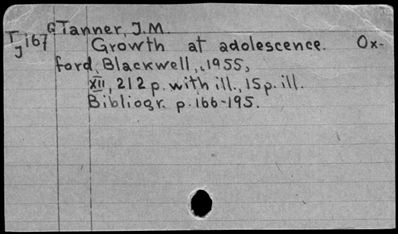 G Tanner, J.M.
T/J 167 Growth at adolescence. Ox-
ford, Blackwell, 1955,
XII, 212 p. with ill., 15 p. ill.
Bibliogr. p. 166-195.